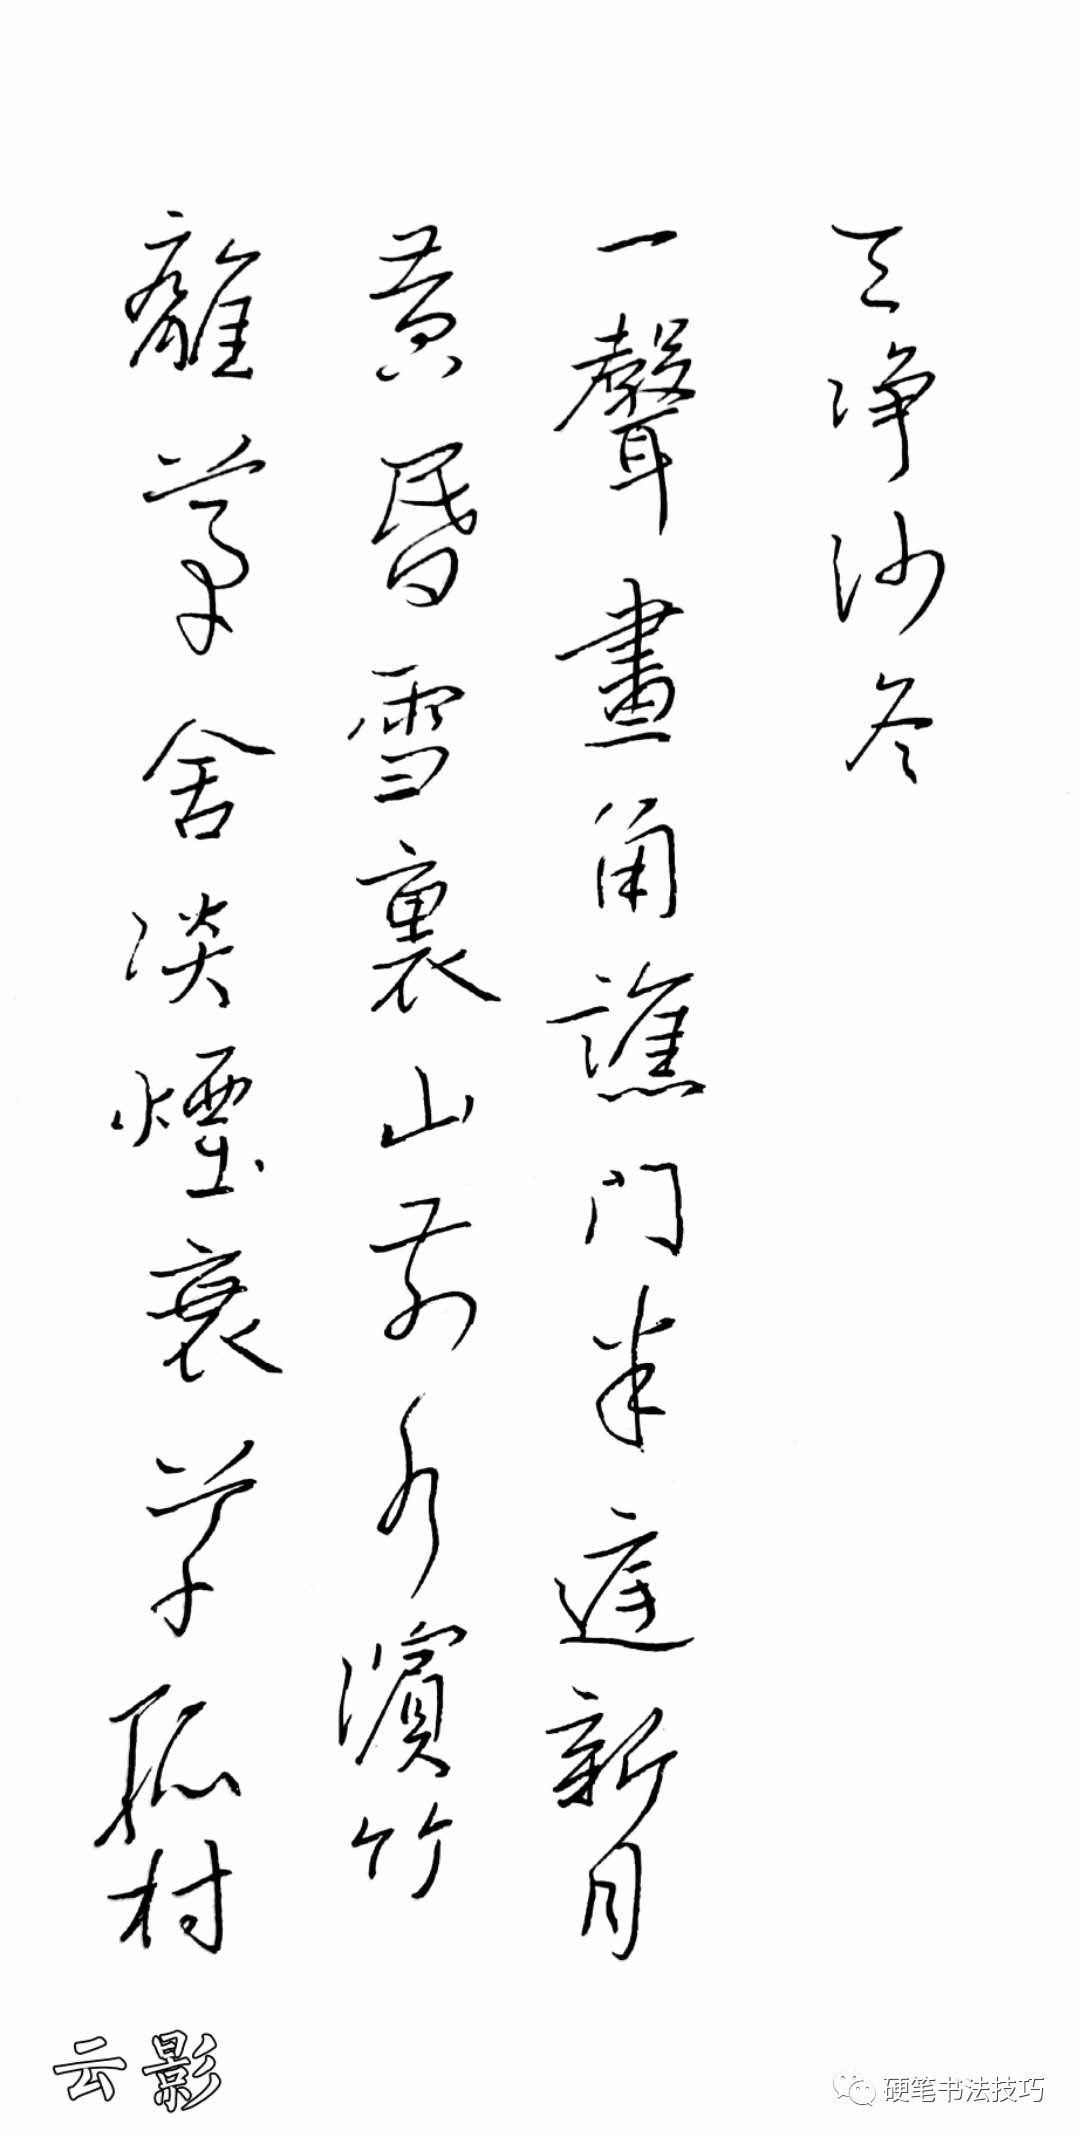 天净沙冬
一聲畫角譙門半庭新月
黄昏雪裏山前水濱竹
離茅舍淡煙衰草孤村
云影
硬笔书法技巧